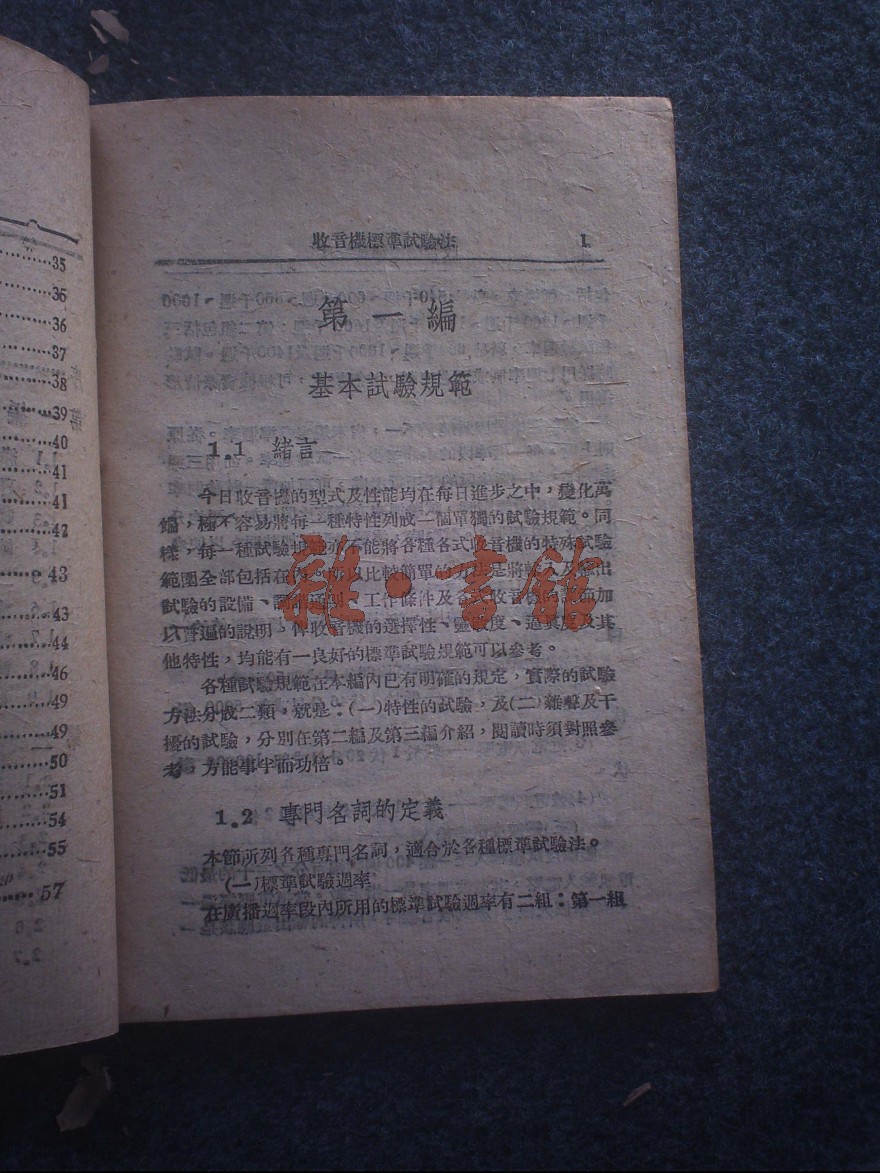 35
35
36
37
38
39
40
41
41
42
43
43
44
46
49
49
50
51
54
55
57
收音機標準試驗法 1
第一編
基本試驗規範
1.1 緒言
今日收音機的型式及性能均在每日進步之中，變化萬
端，極不容易將每一種特性列成一個單獨的試驗規範。同
樣，每一種試驗規範亦不能將各種各式收音機的特殊試驗
範圍全部包括在內。所以比較簡單的方法是將輸入及輸出
試驗的設備、調諧週率、工作條件及各式收音機的詳細加
以普遍的說明。俾收音機的選擇性、靈敏度、逼真度及其
他特性，均能有一良好的標準試驗規範可以參考。
各種試驗規範在本編內已有明確的規定，實際的試驗
方法分成二類，就是：(一)特性的試驗，及(二)雜聲及干
擾的試驗，分別在第二編及第三編介紹，閱讀時須對照參
考，方能事半而功倍。
1.2 專門名詞的定義
本節所列各種專門名詞，適合於各種標準試驗法。
(一)標準試驗週率
在廣播週率段內所用的標準試驗週率有二組：第一組
雜·書館